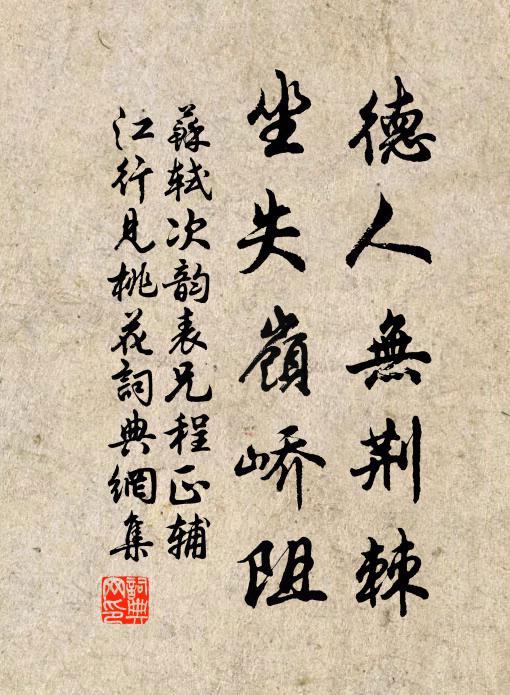 德人無荆棘
坐失嶺嶠阻
蘇軾次韵表兄程正辅
江行見桃花詞典網集
詞典网印